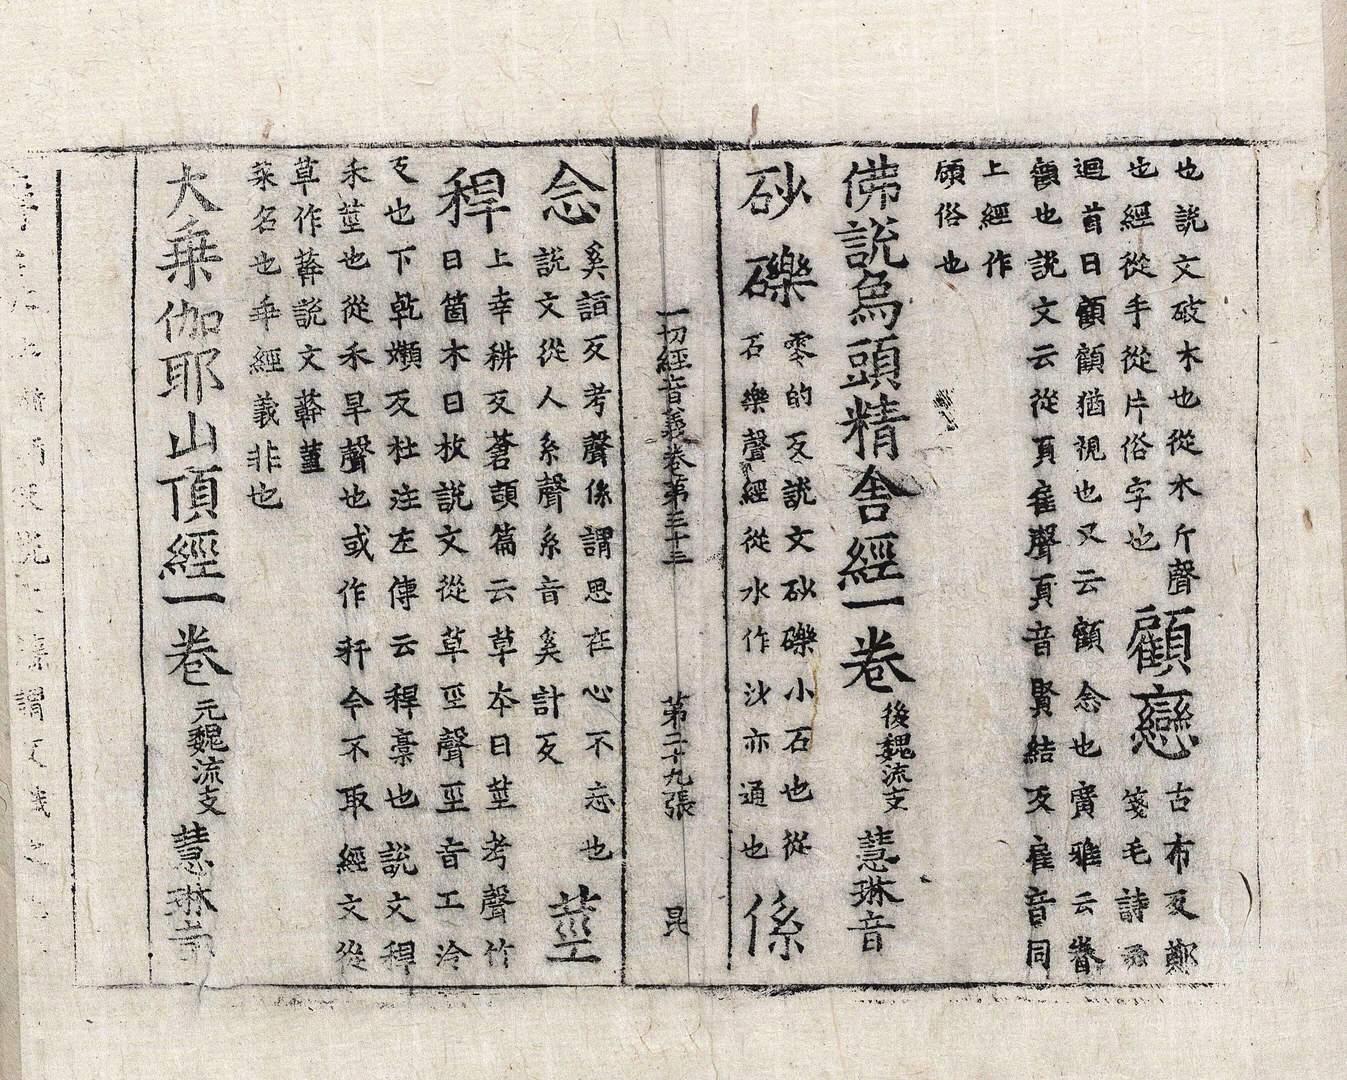 也說文破木也從木斤聲
也經從手從片俗字也
顧戀
古布反鄭
箋毛詩云
迴首曰顧顧猶視也又云顧念也廣雅云眷
顧也說文云從頁雇聲頁音賢結反雇音同
上經作
頋俗也
佛說烏頭精舍經一卷
後魏流支
慧琳音
砂礫
零的反說文砂礫小石也從
石樂聲經從水作沙亦通也
係
一切經音義卷第三十三
第二十九張
昆
念
奚詣反考聲係謂思在心不忘也
說文從人系聲系音奚計反
莖
稈
上幸耕反蒼頡篇云草本曰莖考聲竹
曰箇木曰枚說文從草巠聲巠音工冷
反也下乹嬾反杜注左傳云稈稾也說文稈
禾莖也從禾旱聲也或作秆今不取經文從
草作
說文
菜名也乖經義非也
大乗伽耶山頂經一卷
元魏流支
慧琳音